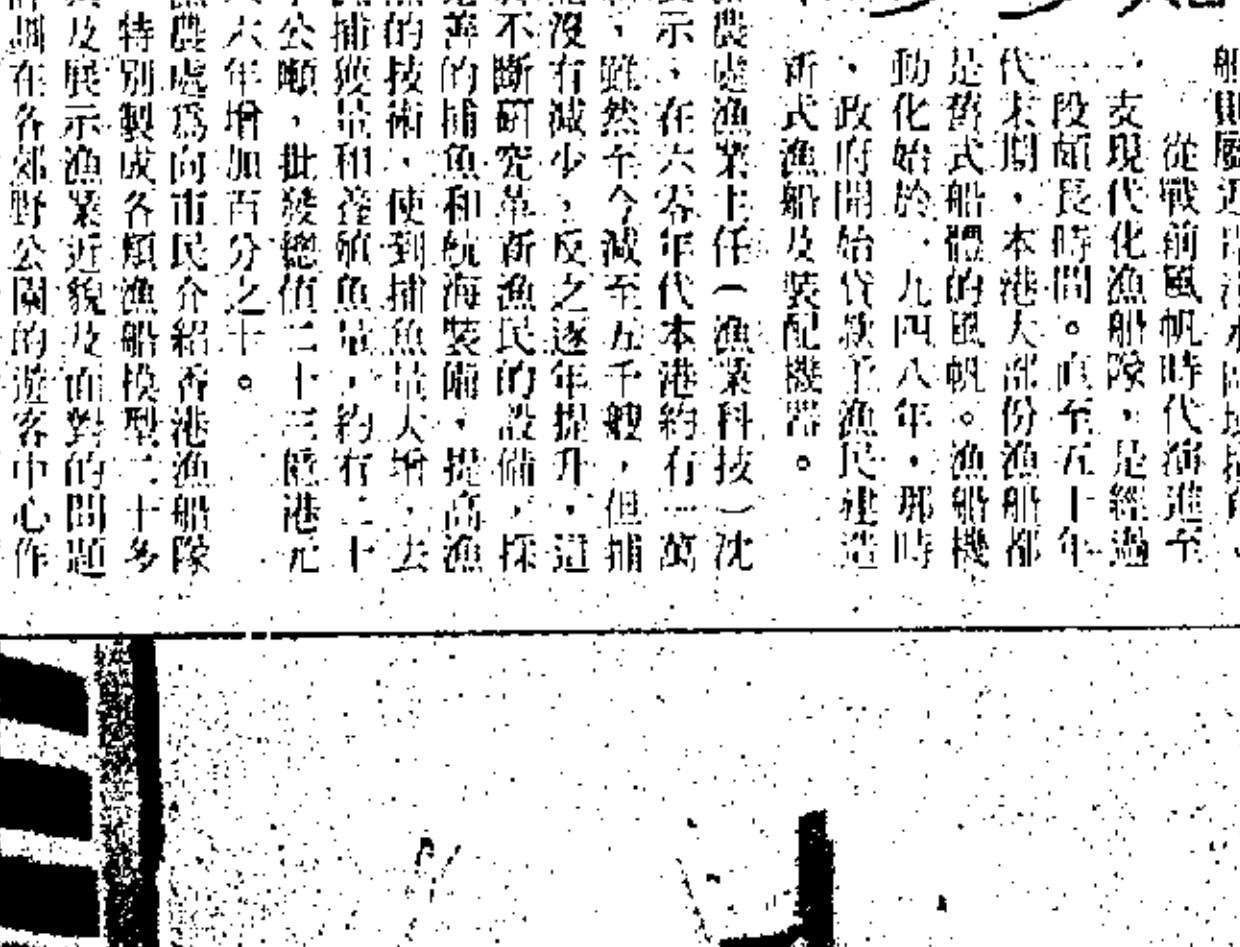 從戰前風帆時代演進至
一支現代化漁船隊,是經過
一段頗長時間。直至五十年
代末期,本港大部份漁船都
是舊式船體的風帆。漁船機
動化始於一九四八年,那時
,政府開始貸款予漁民建造
新式漁船及裝配機器。
農處漁業主任(漁業科技)沈
示,在六零年代本港約有一萬
,雖然至今減至五千艘,但捕
沒有減少,反之逐年提升,這
不斷研究革新漁民的設備,採
善的捕魚和航海裝備,提高漁
的技術,使到捕魚量大增,去
捕獲量和養殖魚量,約有二十
公噸,批發總值二十三億港元
六年增加百分之十。
農處為向市民介紹香港漁船隊
特別製成各類漁船模型二十多
及展示漁業近貌及面對的問題
劃在各郊野公園的遊客中心作